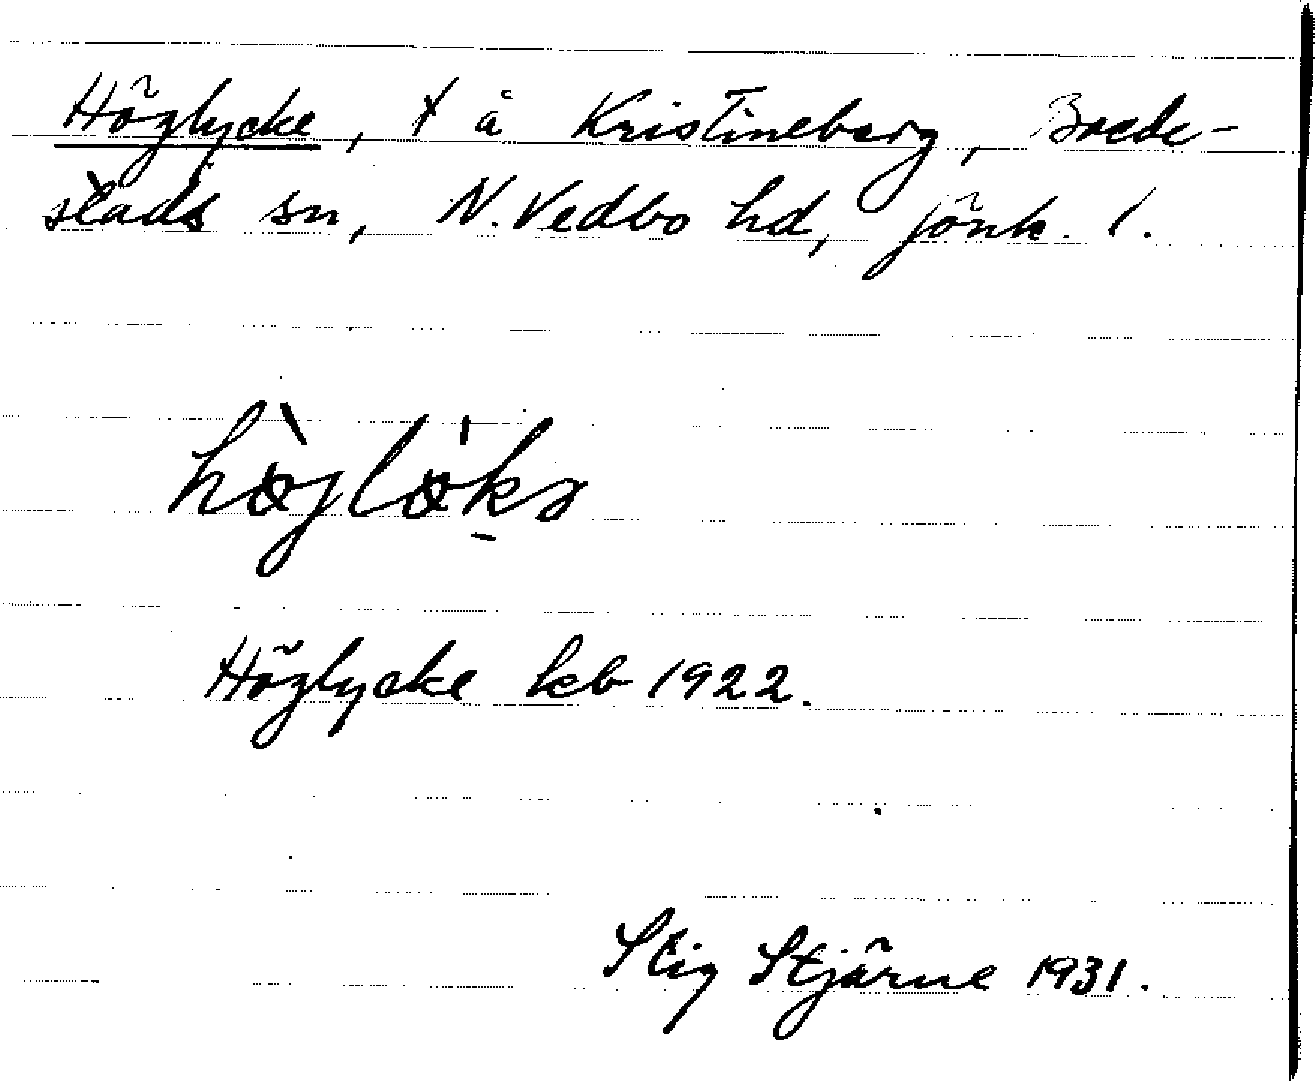 Höglycke, t å Kristineberg, Brede-
stads sn, N. Vedbo hd, Jönk. l.
hø̀jlø̍kə
Höglycke kb 1922.
Stig Stjärne 1931.